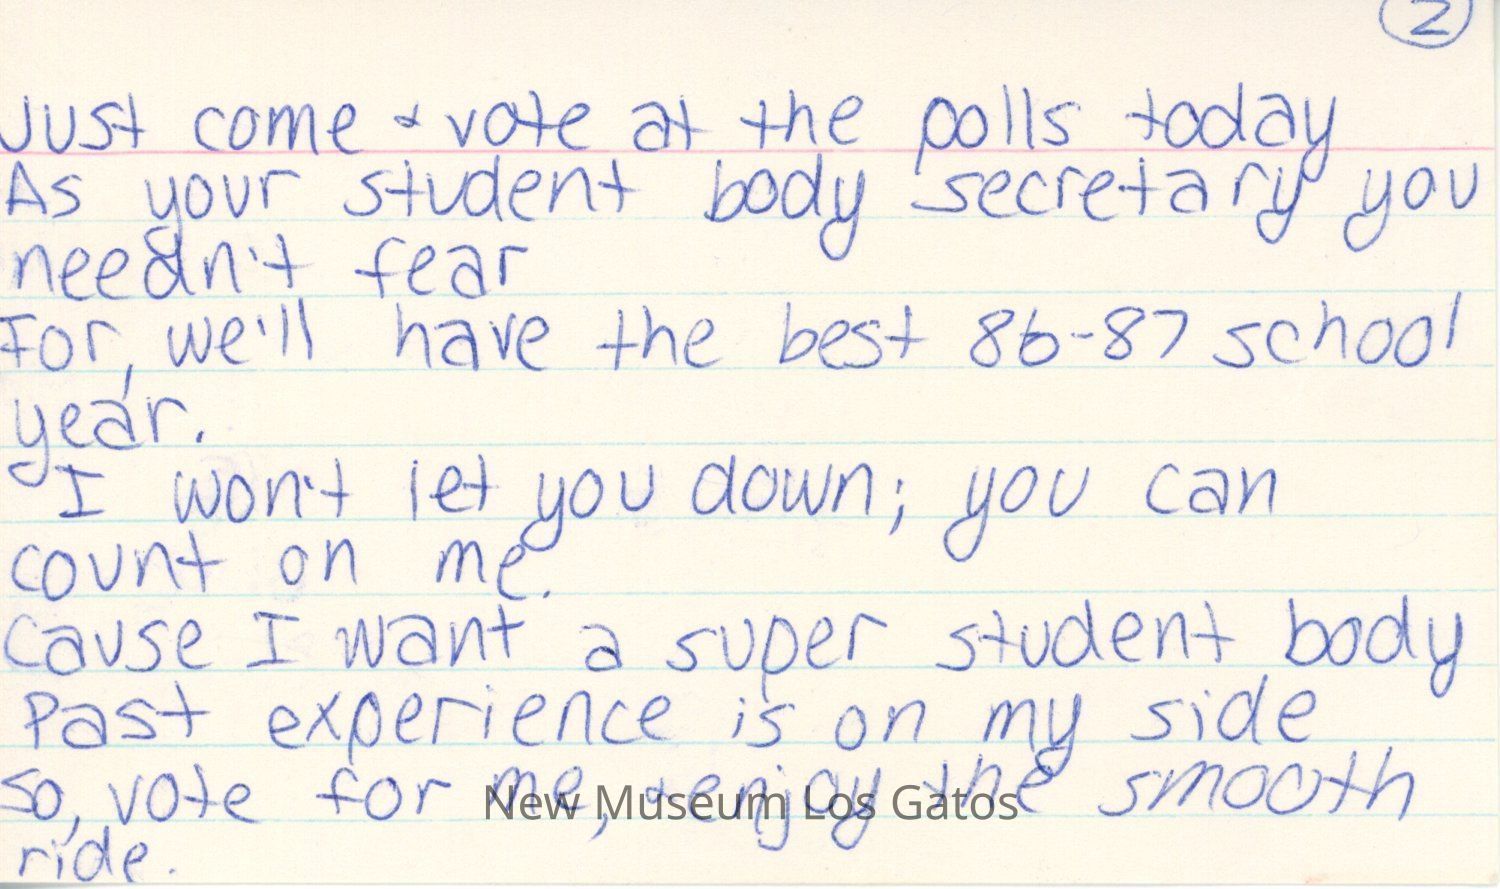 2
Just come & vote at the polls today
As your student body secretary you
needn't fear
For, we'll have the best 86-87 school
year.
I won't let you down; you can
count on me.
Cause I want a super student body
Past experience is on my side
So, vote for me, & enjoy the smooth
ride.
New Museum Los Gatos